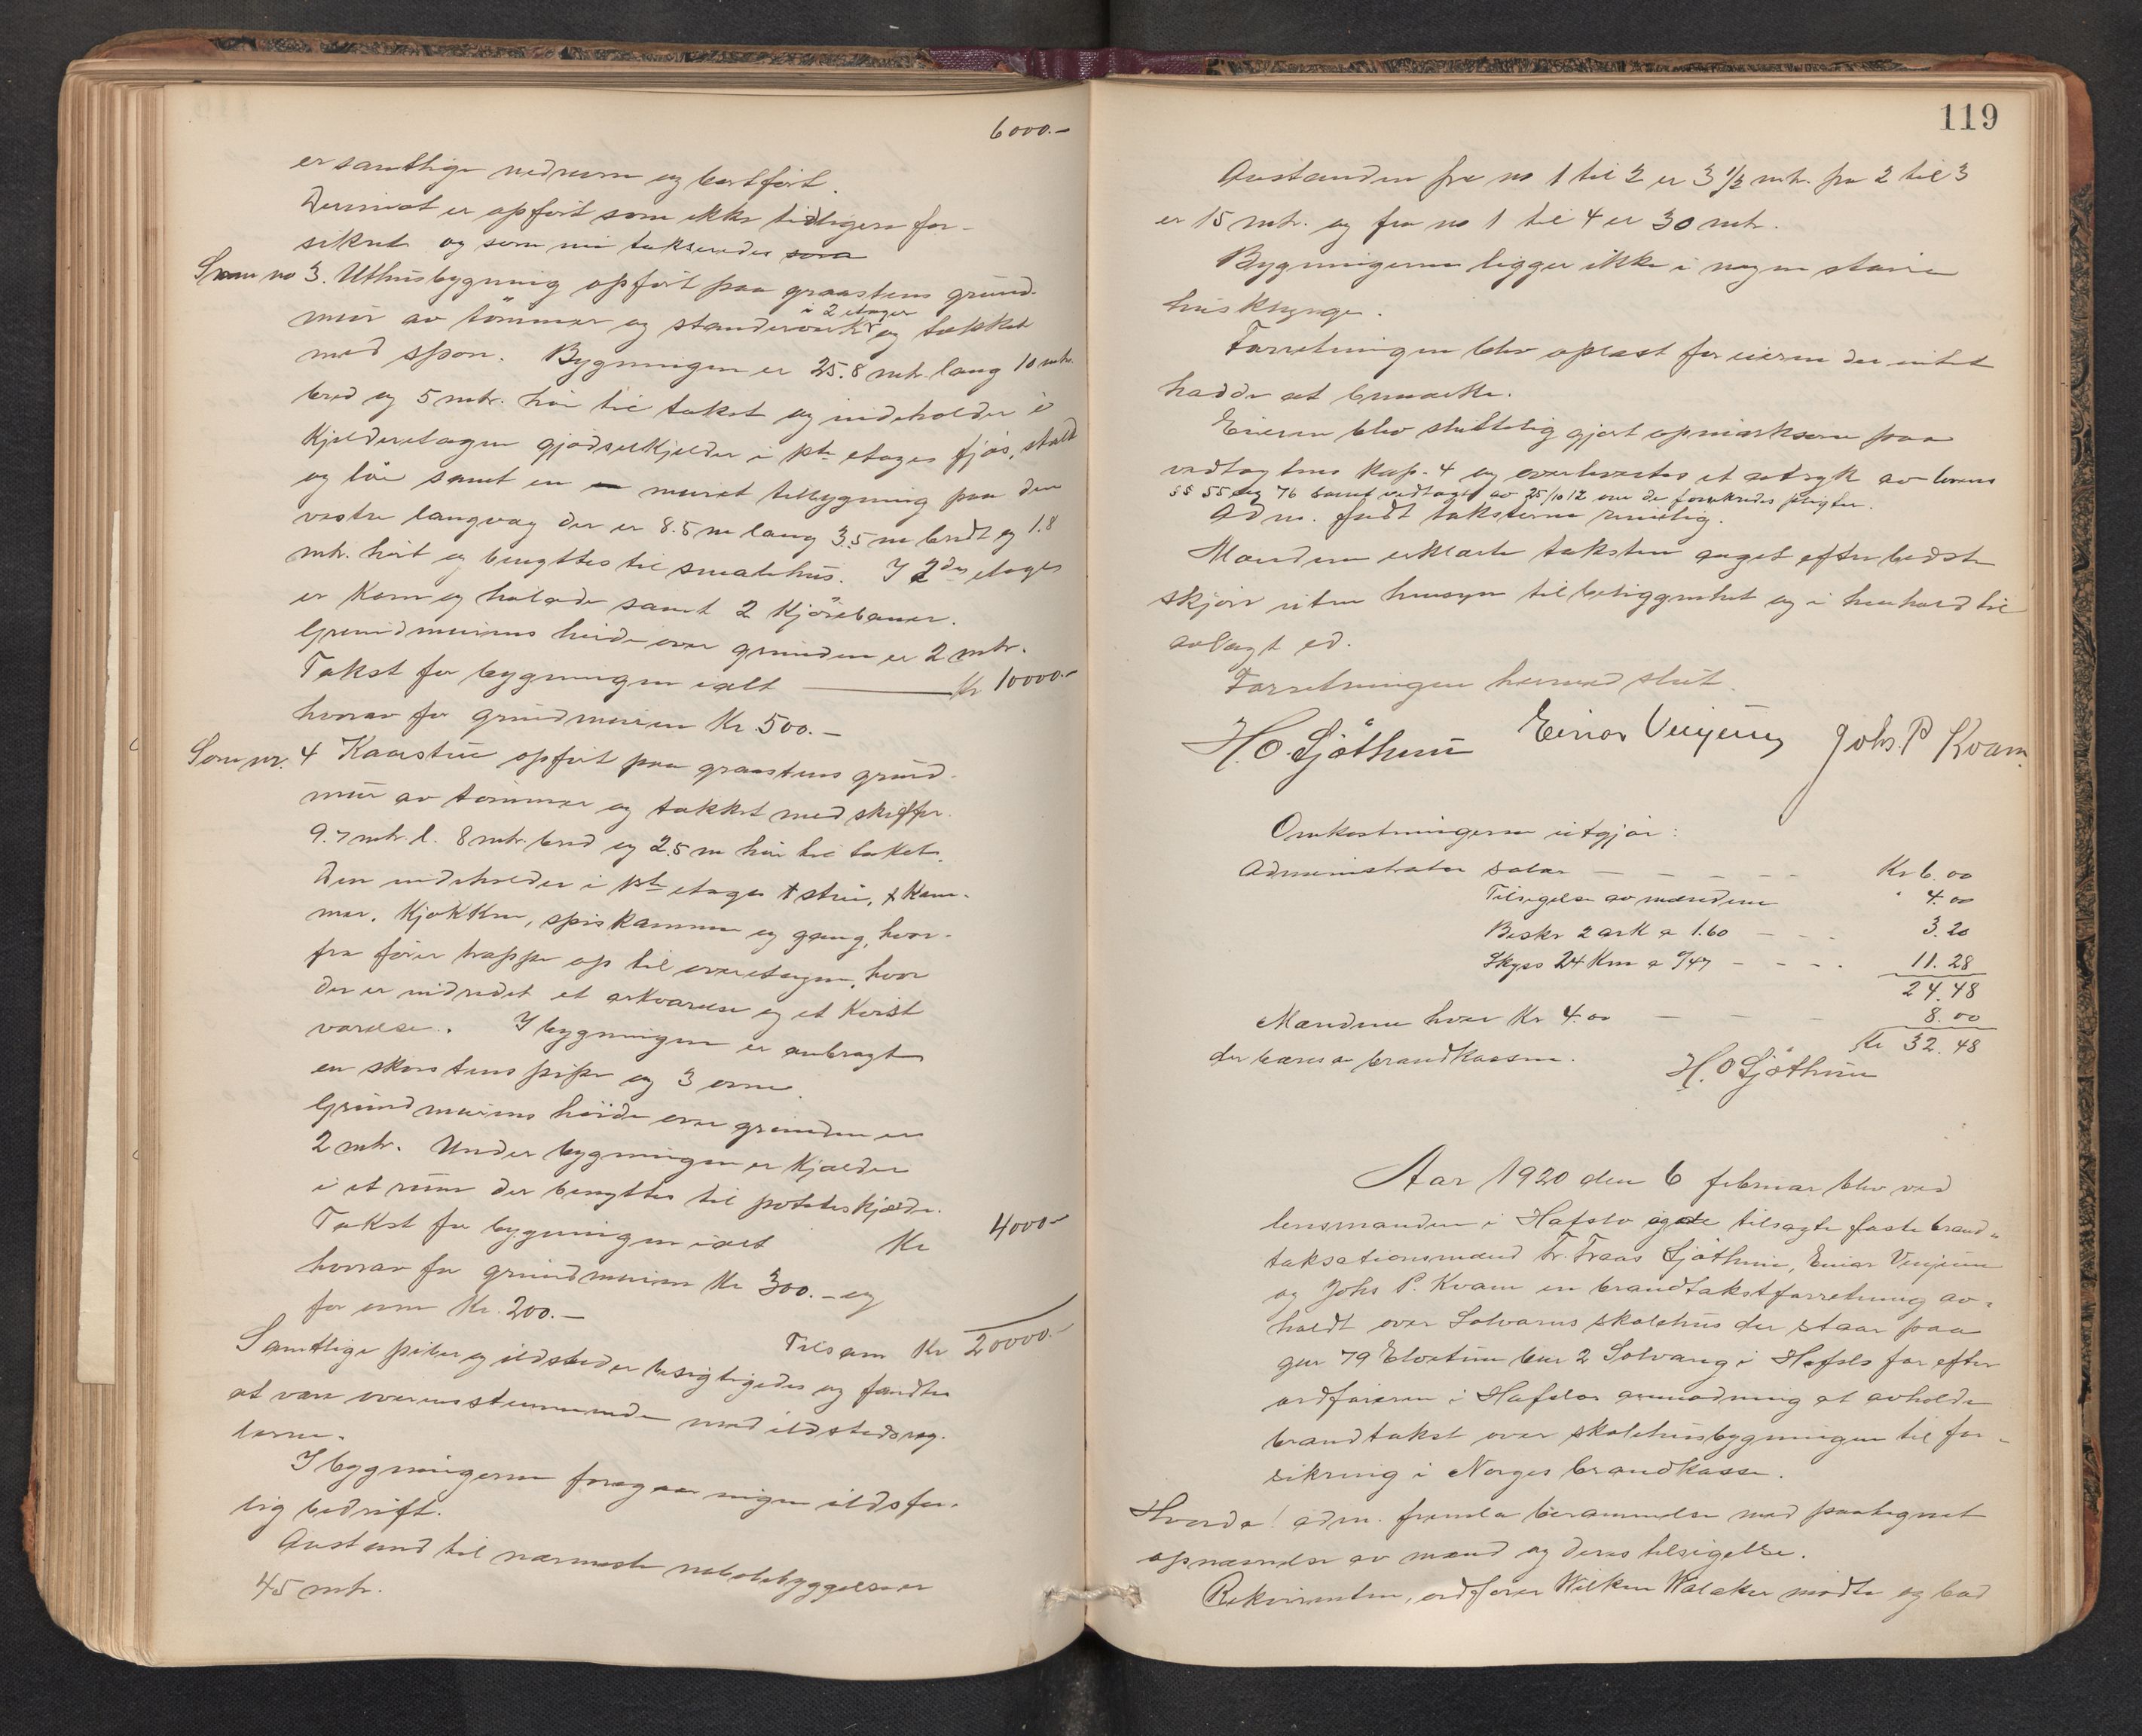 6000.-
er samtlige nedrevne og bortført.
Derimot er opført som ikke tidligere for-
sikret og som nu takseredes som
Som no 3. Uthusbygning opført paa graastens grund-
i 2 etager
mur av tømmer og standerverk og tækket
med spon. Bygningen er 25.8 mtr. lang 10 mtr.
bred og 5 mtr. høi til taket og indeholder i
kjelderetagen gjødselkjelder i 1ste etage fjøs, stald
og løe samt en muret tilbygning paa den
vestre langvæg der er 8.5 m lang 3.5 m bredt og 1.8
mtr. høit og benyttes til smalehus. I 2den etage
er korn og høladе samt 2 kjørebaner.
Grundmurens høide over grunden er 2 mtr.
Takst for bygningen ialt Kr 10000.-
hvorav for grundmuren Kr. 500.-
Som nr. 4 Kaarstue opført paa graastens grund-
mur av tømmer og tækket med skiffer
9.7 mtr. l. 8 mtr. bred og 2.5 m høi til taket.
Den indeholder i 1ste etage 1 stue, 1 kam-
mer, kjøkken, spiskammer og gang, hvor-
fra fører trappe op til overetagen, hvor
der er indredet et arkværelse og et kvist
værelse. I bygningen er anbragt
en skorstenspipe og 3 ovne.
Grundmurens høide over grunden er
2 mtr. Under bygningen er kjælder
i et rum der benyttes til poteteskjælder.
Takst for bygningen ialt Kr 4000-
hvorav for grundmuren Kr 300.- og
for ovne Kr. 200.-
Tilsam Kr 20000.-
Samtlige piber og ildsteder besigtigedes og fandtes
at være overensstemmende med ildstedsreg-
lerne.
I bygningerne foregaar ingen ildsfar-
lig bedrift.
Avstand til nærmeste nabobebyggelse er
45 mtr.
119
Avstanden fra no 1 til 2 er 3 1/2 mtr. fra 2 til 3
er 15 mtr. og fra no 1 til 4 er 30 mtr.
Bygningerne ligger ikke i nogen større
husklynge.
Forretningen blev oplæst for eieren der intet
hadde at bemerke.
Eieren blev skriftelig gjort opmerksom paa
vedtægtens kap. 4 og overlevertes et avtryk av lovens
§§ 55 og 76 samt vedtægt av 25/10 12 om de forsikredes pligter.
Adm. fandt taksterne rimelig.
Mændene erklærte taksten avgit efter bedste
skjøn uten hensyn til beliggenhet og i henhold til
avlagt ed.
Forretningen hermed slut.
H. O. Sjøthun Einar Venjum Johs. P Kvam.
Omkostningerne utgjør:
Administrator salær - - - - - Kr 6.00
Tilsigelse av mændene " 4.00
Beskr 2 ark a 1.60 - - - 3.20
Skyss 24 Km a 0/47 - - - . 11.28
24.48
Mændene hver Kr 4.00 - - - 8.00
Kr 32.48
der bæres av brandkassen.
H. O Sjøthun
Aar 1920 den 6 februar blev ved
lensmanden i Hafslo og de tilsagte faste brand-
taksationsmænd hr. Fraas Sjøthun, Einar Venjum
og Johs P. Kvam en brandtakstforretning av-
holdt over Solvorns skolehus der staar paa
gnr 79 Elvetun bnr 2 Solvang i Hafslo for efter
ordføreren i Hafslos anmodning at avholde
brandtakst over skolehusbygningen til for-
sikring i Norges brandkasse.
Hvorda! adm. fremla berammelse med paategnet
opnævnelse av mænd og deres tilsigelse.
Rekvirenten, ordfører Wilken Walaker mødte og bad